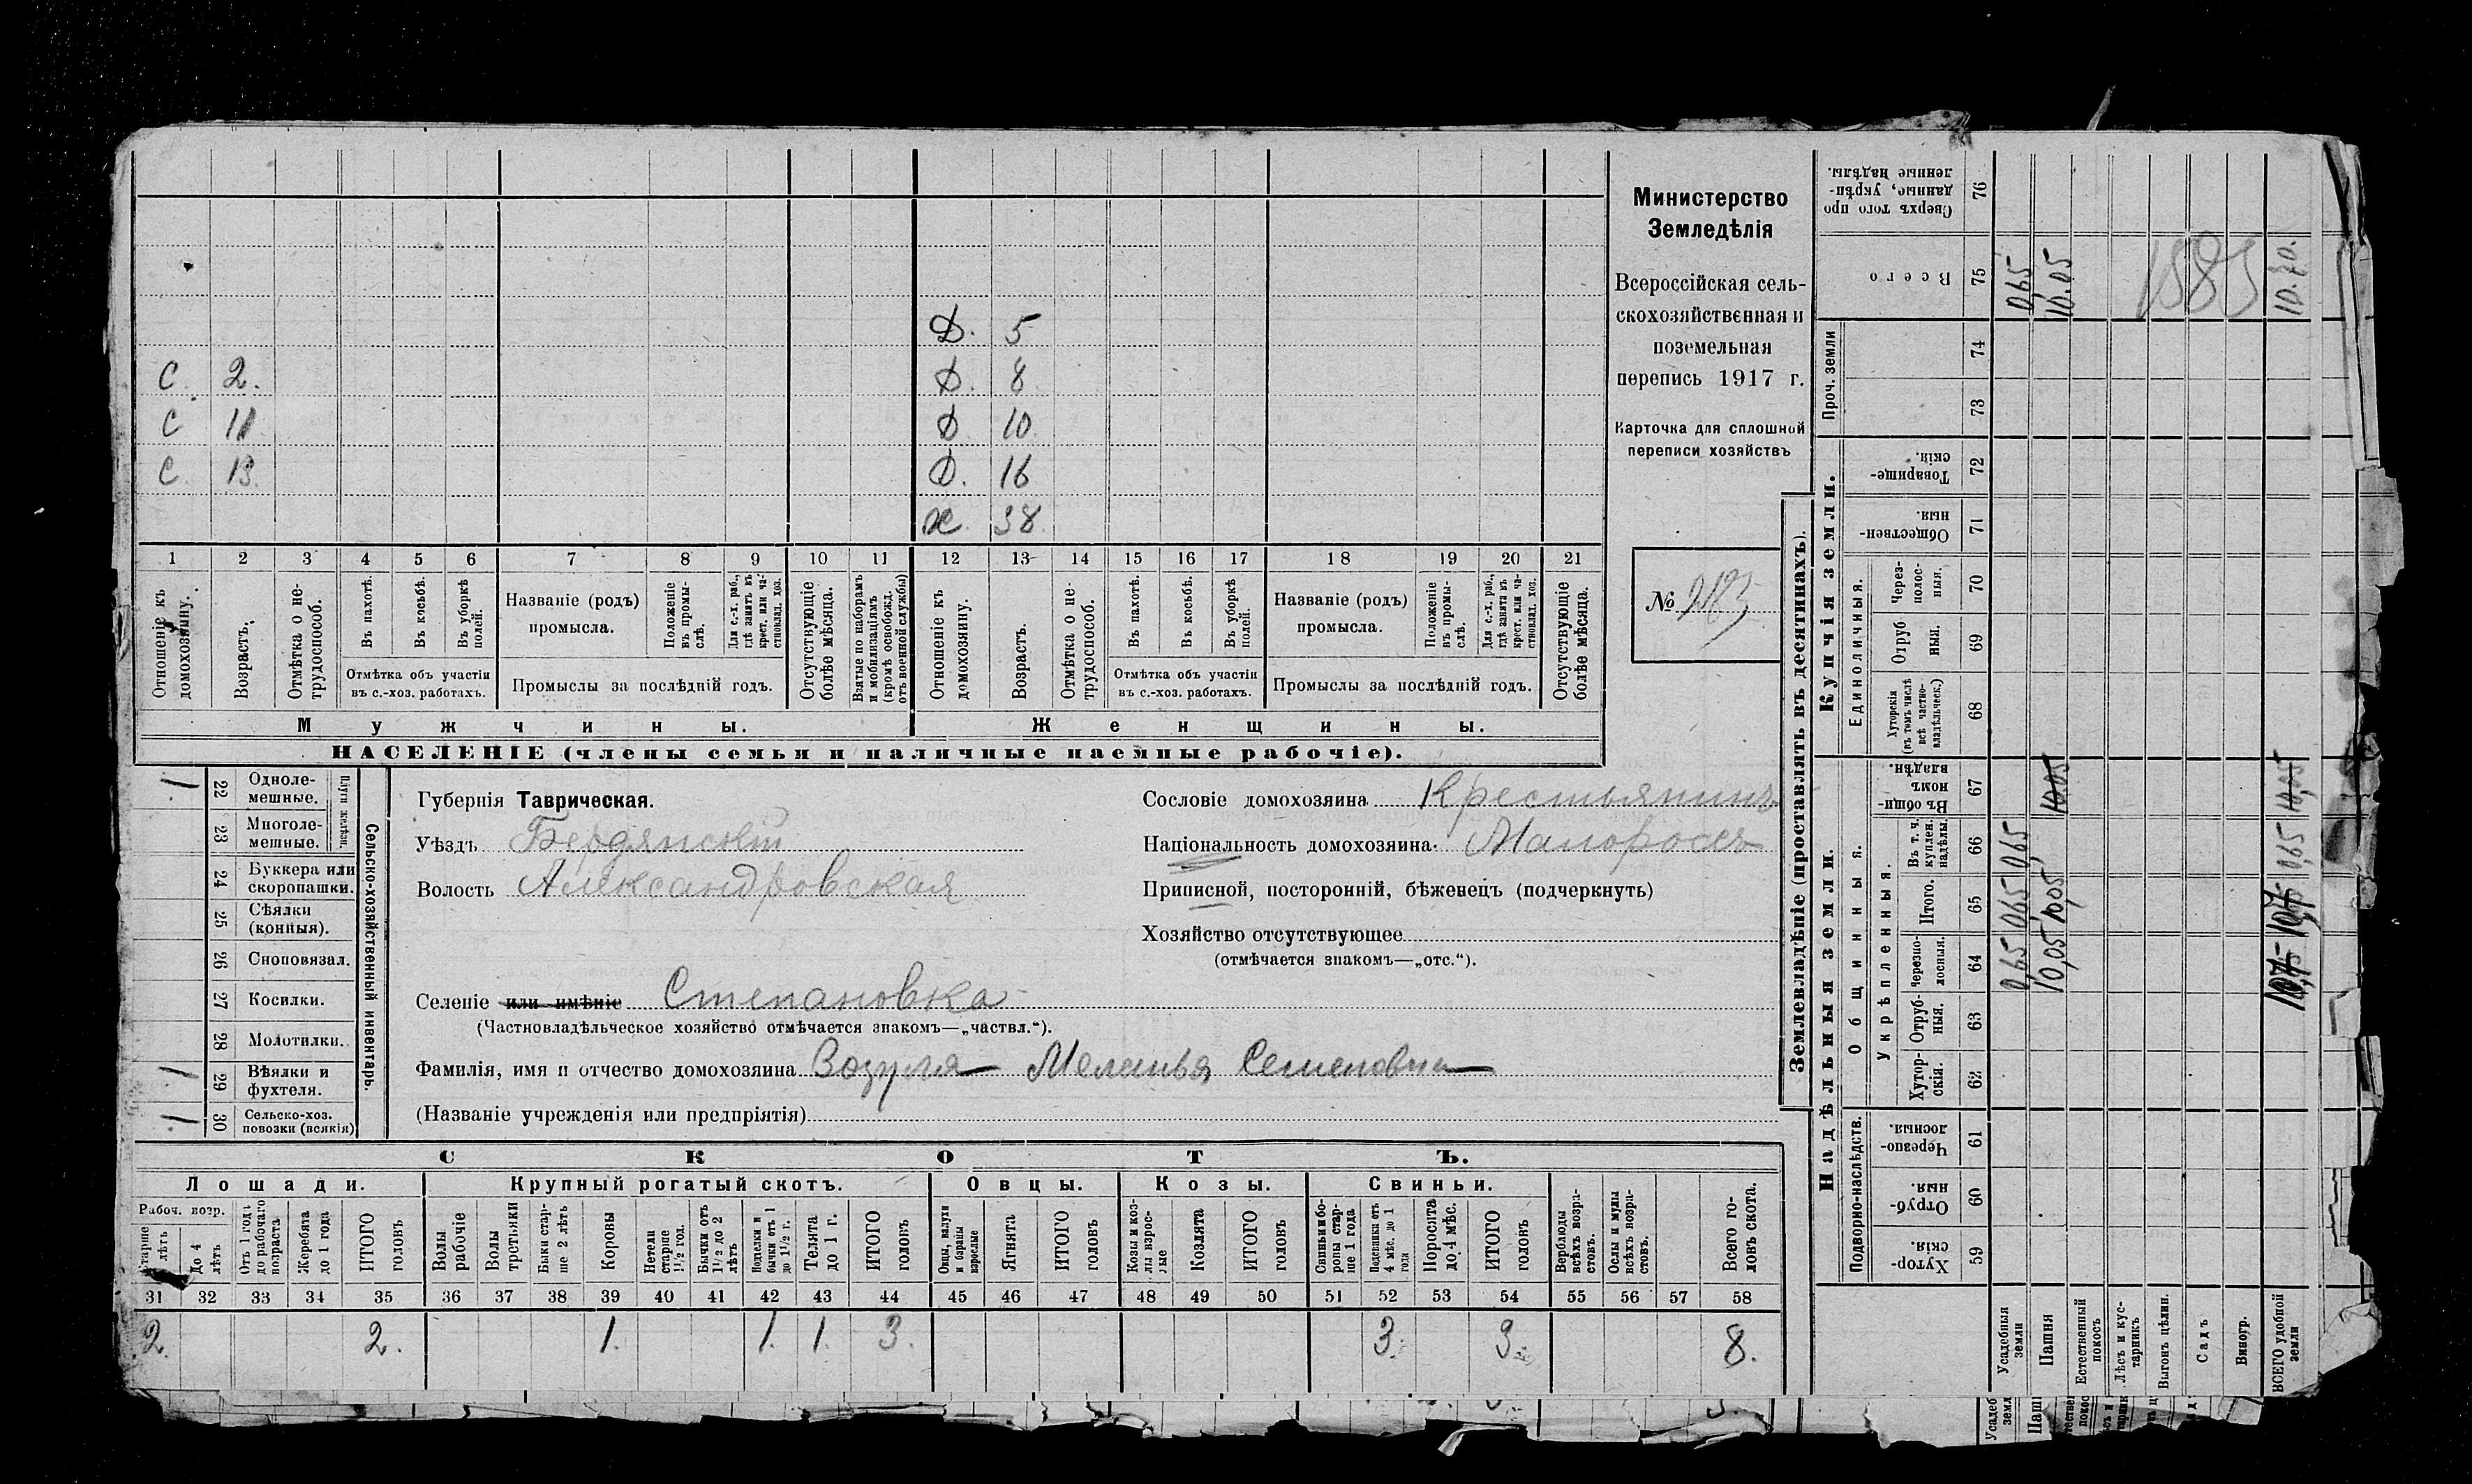 Д. 5
С. 2. Д. 8
С 11 Д 10
С. 13. Д. 16
Ж. 38
1 2 3 4 5 6 7 8 9 10 11 12 13 14 15 16 17 18 19 20 21
Отношеніе къ домохозяину.
Возрастъ.
Отмѣтка о нетрудоспособ.
Въ пахотѣ.
Въ косьбѣ.
Въ уборкѣ полей.
Отмѣтка объ участіи въ с.-хоз. работахъ.
Названіе (родъ) промысла.
Положеніе въ промыслѣ.
Для с.-х. раб., гдѣ занятъ въ крест. или частновлад. хоз.
Промыслы за послѣдній годъ.
Отсутствующіе болѣе мѣсяца.
Взятые по наборамъ и мобилизаціямъ (кромѣ освобожд. отъ военной службы)
Отношеніе къ домохозяину.
Возрастъ.
Отмѣтка о нетрудоспособ.
Въ пахотѣ.
Въ косьбѣ.
Въ уборкѣ полей.
Отмѣтка объ участіи въ с.-хоз. работахъ.
Названіе (родъ) промысла.
Положеніе въ промыслѣ.
Для с.-х. раб., гдѣ занята въ крест. или частновлад. хоз.
Промыслы за послѣдній годъ.
Отсутствующіе болѣе мѣсяца.
Мужчины. Женщины.
НАСЕЛЕНІЕ (члены семьи и наличные наемные рабочіе).
Министерство
Земледѣлія
Всероссійская сель-
скохозяйственная и
поземельная
перепись 1917 г.
Карточка для сплошной
переписи хозяйствъ
№
1 22 Одноле-мешные.
23 Многоле-мешные.
Плуги желѣзн.
24 Буккера или скоропашки.
25 Сѣялки (конныя).
26 Сноповязал.
27 Косилки.
28 Молотилки.
1 29 Вѣялки и фухтеля.
1 30 Сельско-хоз. повозки (всякія)
Сельско-хозяйственный инвентарь.
Губернія Таврическая.
Уѣздъ Бердянскій
Волость Александровская
Сословіе домохозяина Крестьянинъ
Національность домохозяина. Малороссъ
Приписной, посторонній, бѣженецъ (подчеркнуть)
Хозяйство отсутствующее
(отмѣчается знакомъ—„отс.“).
Селеніе или имѣніе Степановка
(Частновладѣльческое хозяйство отмѣчается знакомъ—„частвл.“).
Фамилія, имя и отчество домохозяина Возуля Меланья Семеновна
(Названіе учрежденія или предпріятія)
СКОТЪ.
Лошади. Крупный рогатый скотъ. Овцы. Козы. Свиньи.
Рабоч. возр.
Старше 4 лѣтъ
До 4 лѣтъ
Отъ 1 года до рабочаго возраста
Жеребята до 1 года
ИТОГО головъ
Волы рабочіе
Волы
Быки старше 2 лѣтъ
Коровы
Нетели старше 1½ год.
Бычки отъ 1½ до 2 лѣтъ
Подтелки и бычки отъ 1 до 1½ г.
Телята до 1 г.
ИТОГО головъ
Овцы, валухи и бараны взрослые
Ягнята
ИТОГО головъ
Козы и козлы взрослые
Козлята
ИТОГО головъ
Свиньи и боровы старше 1 года
Подсвинки отъ 4 мѣс. до 1 года
Поросята до 4 мѣс.
ИТОГО головъ
Верблюды всѣхъ возрастовъ.
Ослы и мулы всѣхъ возрастовъ.
Всего головъ скота.
31 32 33 34 35 36 37 38 39 40 41 42 43 44 45 46 47 48 49 50 51 52 53 54 55 56 57 58
2. 2. 1. 1. 1. 3. 3. 3. 8.
Землевладѣніе (проставлять въ десятинахъ).
Купчія земли.
Надѣльныя земли.
Сверхъ того проданные, укрѣпленные надѣлы. 76
Всего 75 0,65 10,05 1883 10.70.
Проч. земли 74 73
Товарищескія. 72
Общественныя. 71
Единоличныя.
Черезполосныя. 70
Отрубныя. 69
Хуторскія (въ томъ числѣ всѣ частновладѣльческ.) 68
Общинныя.
Въ общинномъ владѣн. 67 10,05 10,05
Укрѣпленныя.
Въ т. ч. куплен. надѣлы. 66 0,65 0,65
Итого. 65 0,65 10,05
Черезполосныя. 64 0,65 10,05
Отрубныя. 63
Хуторскія. 62
Подворно-наслѣдств.
Черезполосныя. 61
Отрубныя. 60
Хуторскія. 59
Усадебныя земли
Пашня
Естественный покосъ
Лѣсъ и кустарникъ
Выгонъ цѣлин.
Садъ
Виногр.
ВСЕГО удобной земли